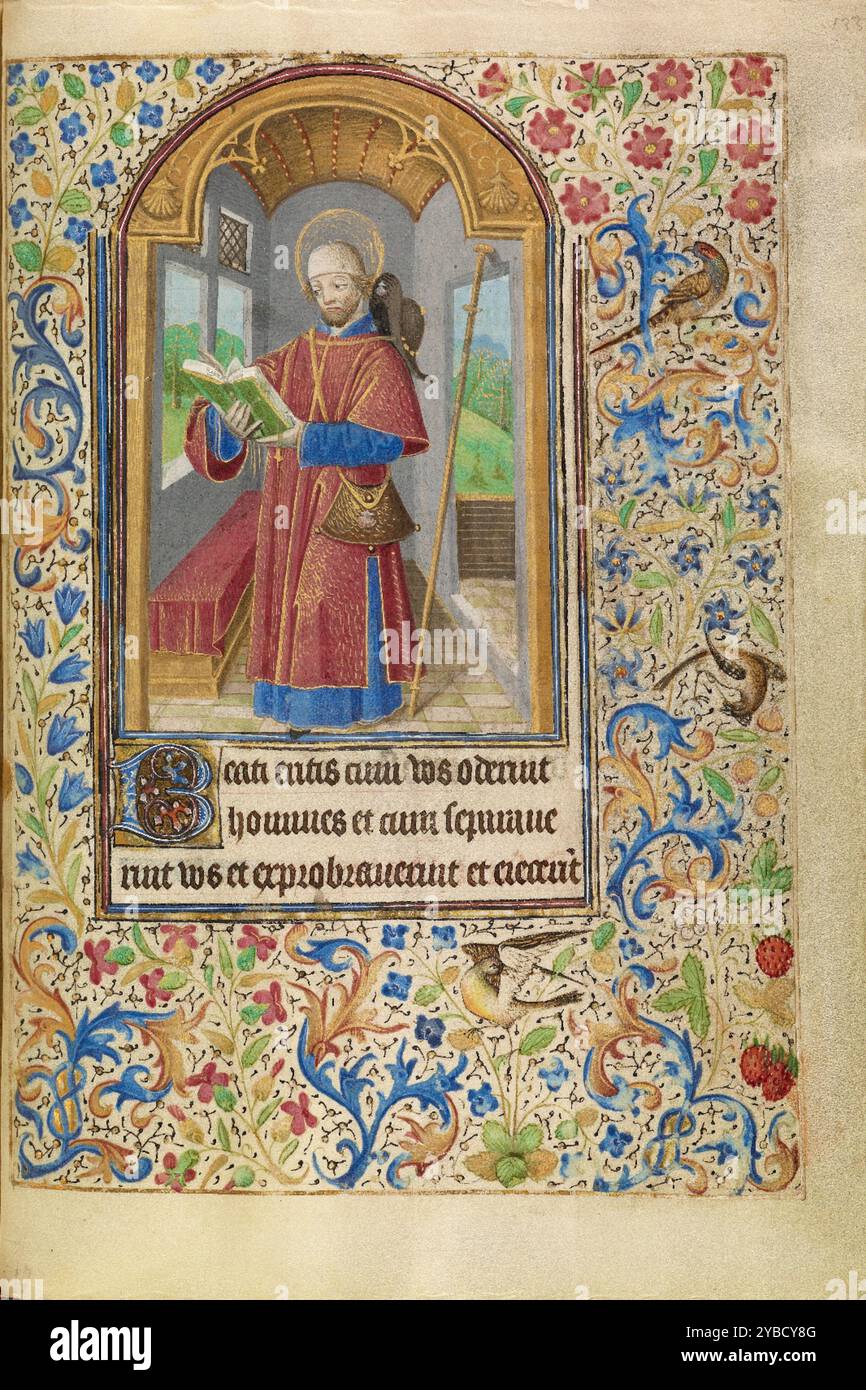 Beati eritis cum vos oderint
homines et cum separaue
rint vos et exprobrauerint et eiecerīt
alamy
Image ID: 2YBCY8G
www.alamy.com